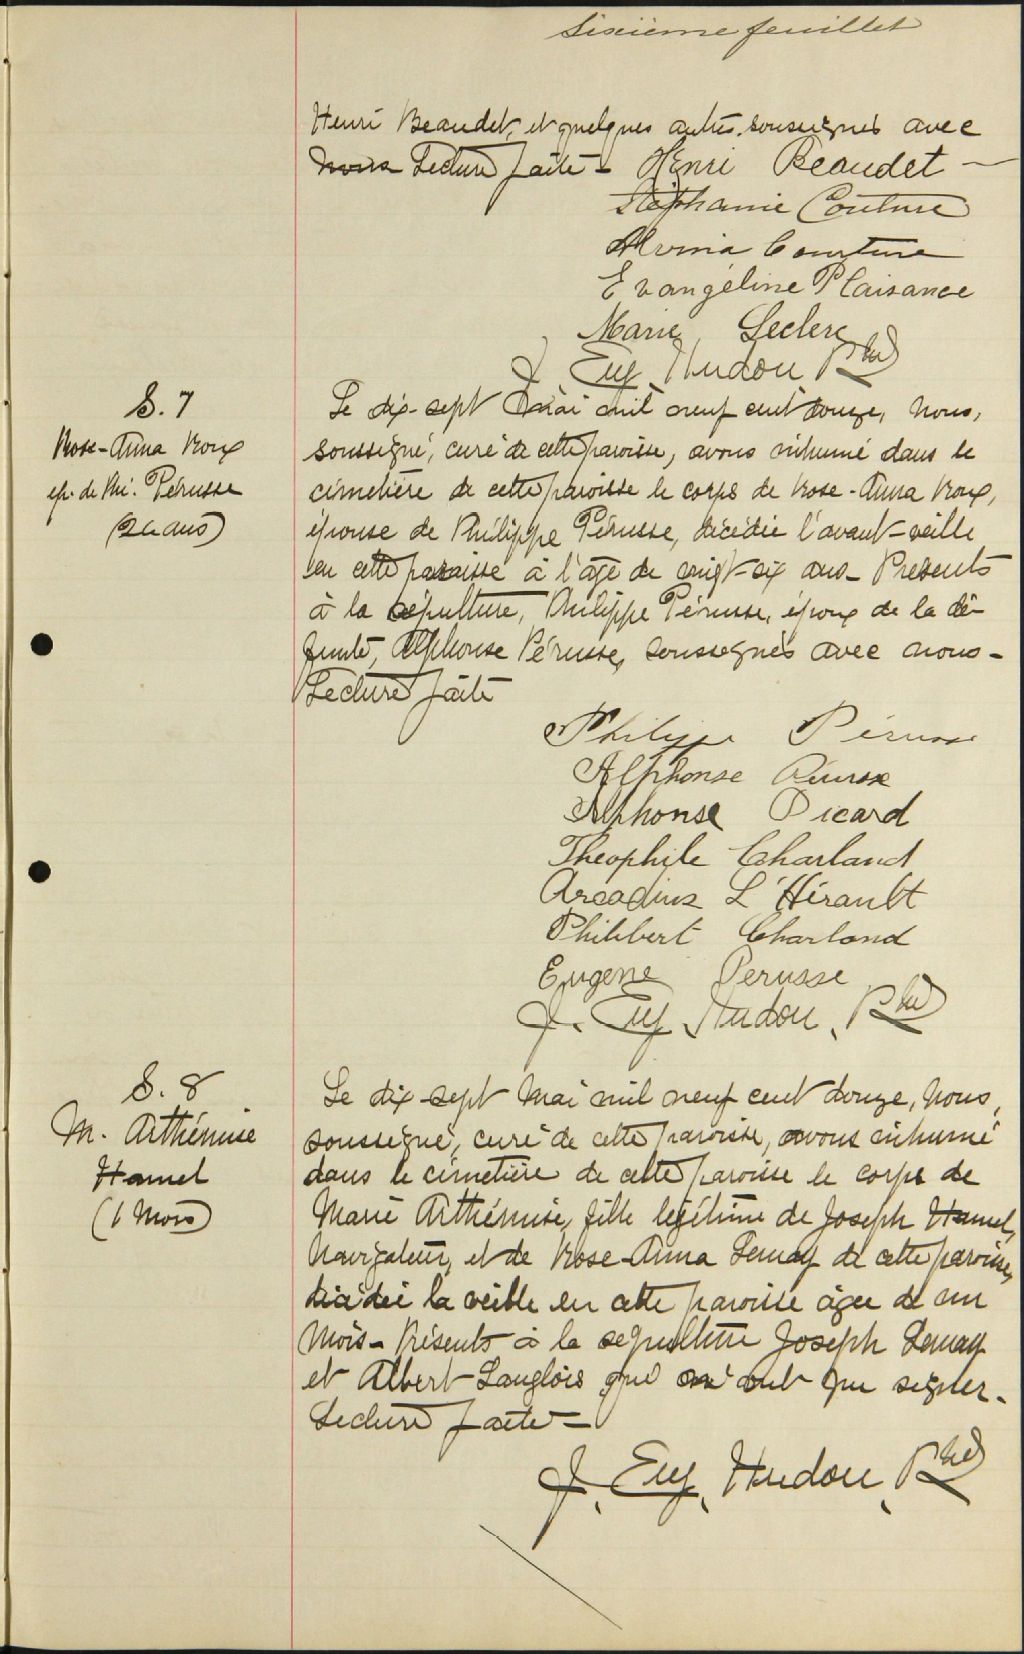 Sixième feuillet
Henri Beaudet, et quelques autres soussignés avec
nous Lecture faite - Henri Beaudet -
Stéphanie Couture
Alvina Couture
Evangéline Plaisance
Marie Leclerc
J. Eug. Hudon Ptre
S. 7
Rose-Anna Roux
ép. de Phi. Pérusse
(26 ans)
Le dix-sept mai mil neuf cent douze, nous,
soussigné, curé de cette paroisse, avons inhumé dans le
cimetière de cette paroisse le corps de Rose-Anna Roux,
épouse de Philippe Pérusse, décédée l'avant-veille
en cette paroisse à l'âge de vingt-six ans - Présents
à la sépulture, Philippe Pérusse, époux de la dé-
funte, Alphonse Pérusse, soussignés avec nous -
Lecture faite
Philippe Pérusse
Alphonse Pérusse
Alphonse Picard
Théophile Charland
Arcadius L'Hérault
Philibert Charland
Eugene Perusse
J. Eug. Hudon, Ptre
S. 8
M. Arthémise
Hamel
(1 Mois)
Le dix-sept Mai mil neuf cent douze, Nous,
soussigné, curé de cette paroisse, avons inhumé
dans le cimetière de cette paroisse le corps de
Marie Arthémise, fille légitime de Joseph Hamel,
Navigateur, et de Rose-Anna Lemay de cette paroisse,
décédée la veille en cette paroisse âgée de un
Mois - Présents à la sépulture Joseph Lemay
et Albert Langlois qui n'ont pu signer -
Lecture faite -
J. Eug. Hudon, Ptre